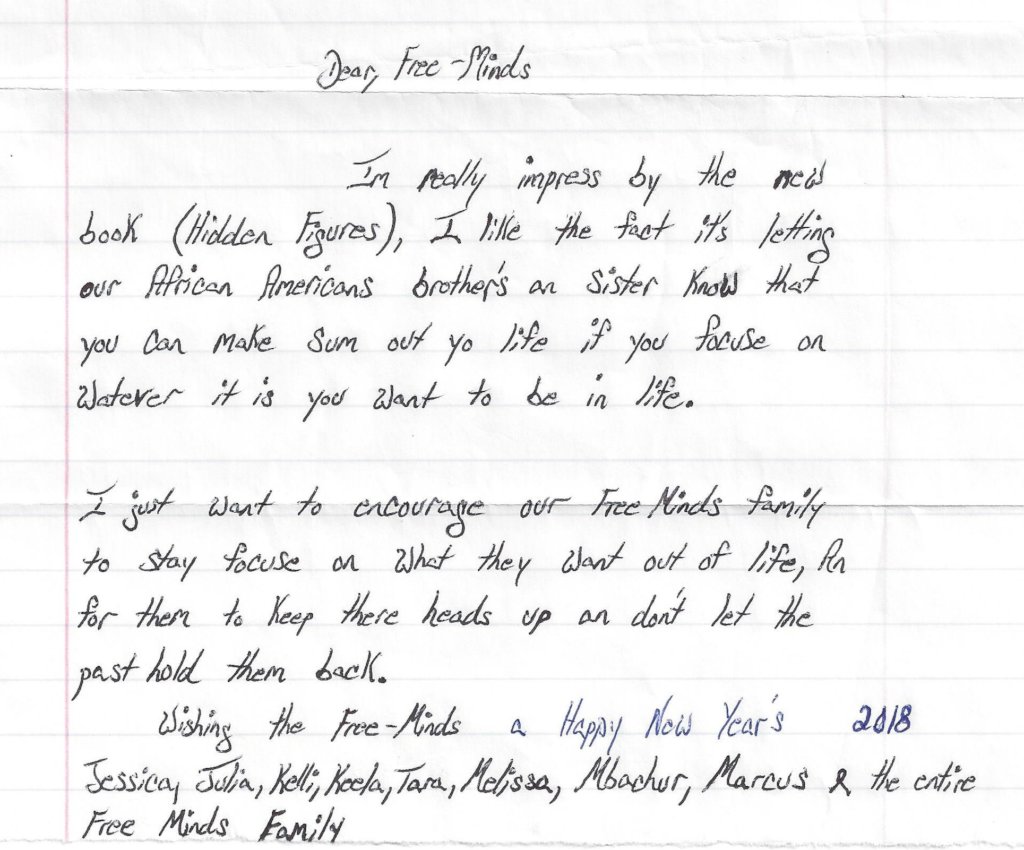 Dear, Free-Minds
Im really impress by the new
book (Hidden Figures), I like the fact it's letting
our African Americans brother's an Sister Know that
you can make sum out yo life if you focuse on
Watever it is you want to be in life.
I just want to encourage our Free Minds family
to stay focuse on what they want out of life, An
for them to keep there heads up an don't let the
past hold them back.
Wishing the Free-Minds a Happy New Year's 2018
Jessica, Julia, Kelli, Keela, Tara, Melissa, Mbachur, Marcus & the entire
Free Minds Family